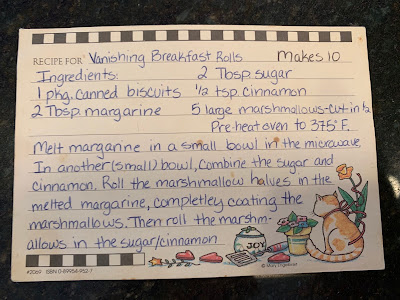 RECIPE FOR Vanishing Breakfast Rolls Makes 10
Ingredients: 2 Tbsp. sugar
1 pkg. canned biscuits ½ tsp. cinnamon
2 Tbsp. margarine 5 large marshmallows-cut in ½
Pre-heat oven to 375° F.
Melt margarine in a small bowl in the microwave.
In another (small) bowl, combine the sugar and
cinnamon. Roll the marshmallow halves in the
melted margarine, completley coating the
marshmallows. Then roll the marshm-
allows in the sugar/cinnamon
JOY
#2069 ISBN 0-89954-952-7